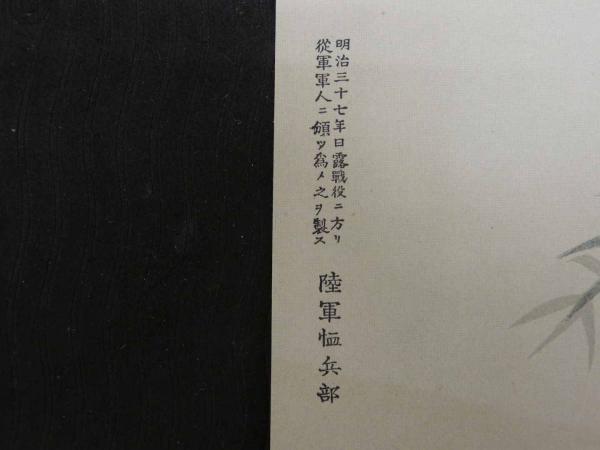 明治三十七年日露戰役ニ方リ
從軍軍人ニ頒ツ爲メ之ヲ製ス
陸軍恤兵部